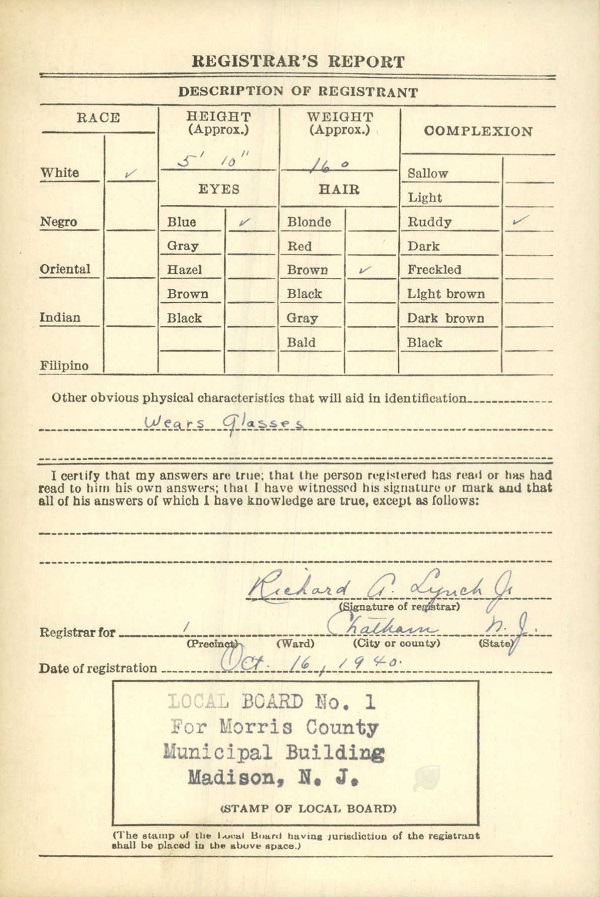 REGISTRAR'S REPORT
DESCRIPTION OF REGISTRANT
RACE
HEIGHT
(Approx.)
WEIGHT
(Approx.)
COMPLEXION
5' 10"
160
White ✓
EYES
HAIR
Sallow
Light
Negro
Blue ✓
Blonde
Ruddy ✓
Gray
Red
Dark
Oriental
Hazel
Brown ✓
Freckled
Brown
Black
Light brown
Indian
Black
Gray
Dark brown
Bald
Black
Filipino
Other obvious physical characteristics that will aid in identification
Wears Glasses
I certify that my answers are true; that the person registered has read or has had
read to him his own answers; that I have witnessed his signature or mark and that
all of his answers of which I have knowledge are true, except as follows:
Richard A. Lynch Jr
(Signature of registrar)
Registrar for 1 Chatham N. J.
(Precinct) (Ward) (City or county) (State)
Date of registration Oct. 16, 1940.
LOCAL BOARD No. 1
For Morris County
Municipal Building
Madison, N. J.
(STAMP OF LOCAL BOARD)
(The stamp of the Local Board having jurisdiction of the registrant
shall be placed in the above space.)